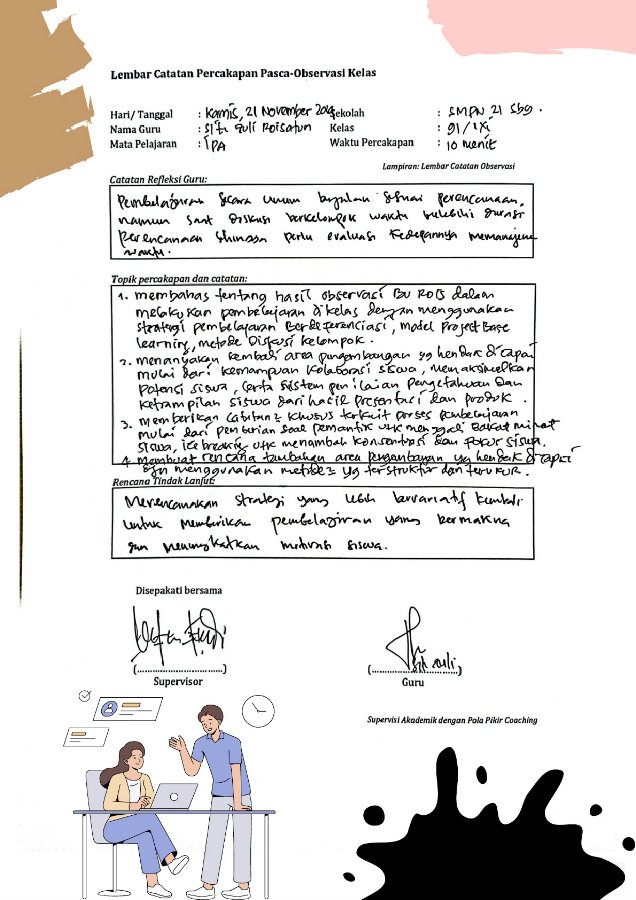 Lembar Catatan Percakapan Pasca-Observasi Kelas
Hari/ Tanggal : Kamis, 21 November 2024 Sekolah : SMPN 21 Sbg.
Nama Guru : Siti Euli Roisatun Kelas : 91/IXi
Mata Pelajaran : IPA Waktu Percakapan : 10 menit
Lampiran: Lembar Catatan Observasi
Catatan Refleksi Guru:
Pembelajaran secara umum berjalan sesuai perencanaan,
namun saat diskusi berkelompok waktu melebihi durasi
perencanaan sehingga perlu evaluasi kedepannya memanajemen
waktu.
Topik percakapan dan catatan:
1. membahas tentang hasil observasi Bu Rois dalam
melakukan pembelajaran di kelas dengan menggunakan
strategi pembelajaran Berdeferenciasi, model Project Base
learning, metode Diskusi kelompok.
2. menanyakan kembali area pengembangan yg hendak di capai
mulai dari kemampuan kolaborasi siswa, memaksimalkan
potensi siswa, serta sistem penilaian pengetahuan dan
ketrampilan siswa dari hasil presentasi dan produk.
3. memberikan catatan2 khusus terkait proses pembelajaran
mulai dari pemberian soal pemantik utk menggali Bakat minat
siswa, ice breaking utk menambah konsentrasi dan fokus siswa.
4. membuat rencana tambahan area pengembangan yg hendak di capai
dgn menggunakan metode2 yg terstruktur dan terukur.
Rencana Tindak Lanjut:
Merencanakan strategi yang lebih bervariatif kembali
untuk memberikan pembelajaran yang bermakna
dan meningkatkan motivasi siswa.
Disepakati bersama
(..............................) (..............................)
Supervisor Guru
Supervisi Akademik dengan Pola Pikir Coaching